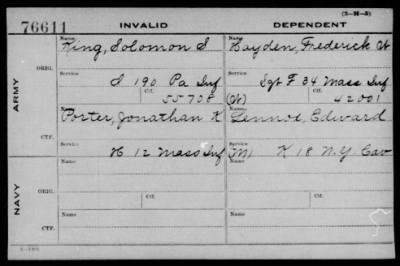 (3-H-5)
76611 INVALID DEPENDENT
Name Name
King, Solomon S Hayden, Frederick W
ORIG. Service Service
I 190 Pa Inf Sgt F 34 Mass Inf
Ctf. Ctf.
55708 (W) 42001
ARMY
Name Name
Porter, Jonathan K Lennox, Edward
CTF. Service Service
H 12 Mass Inf (M) K 18 N.Y. Cav
Name Name
ORIG. Service Ctf. Service Ctf.
NAVY
Name Name
CTF. Service Service